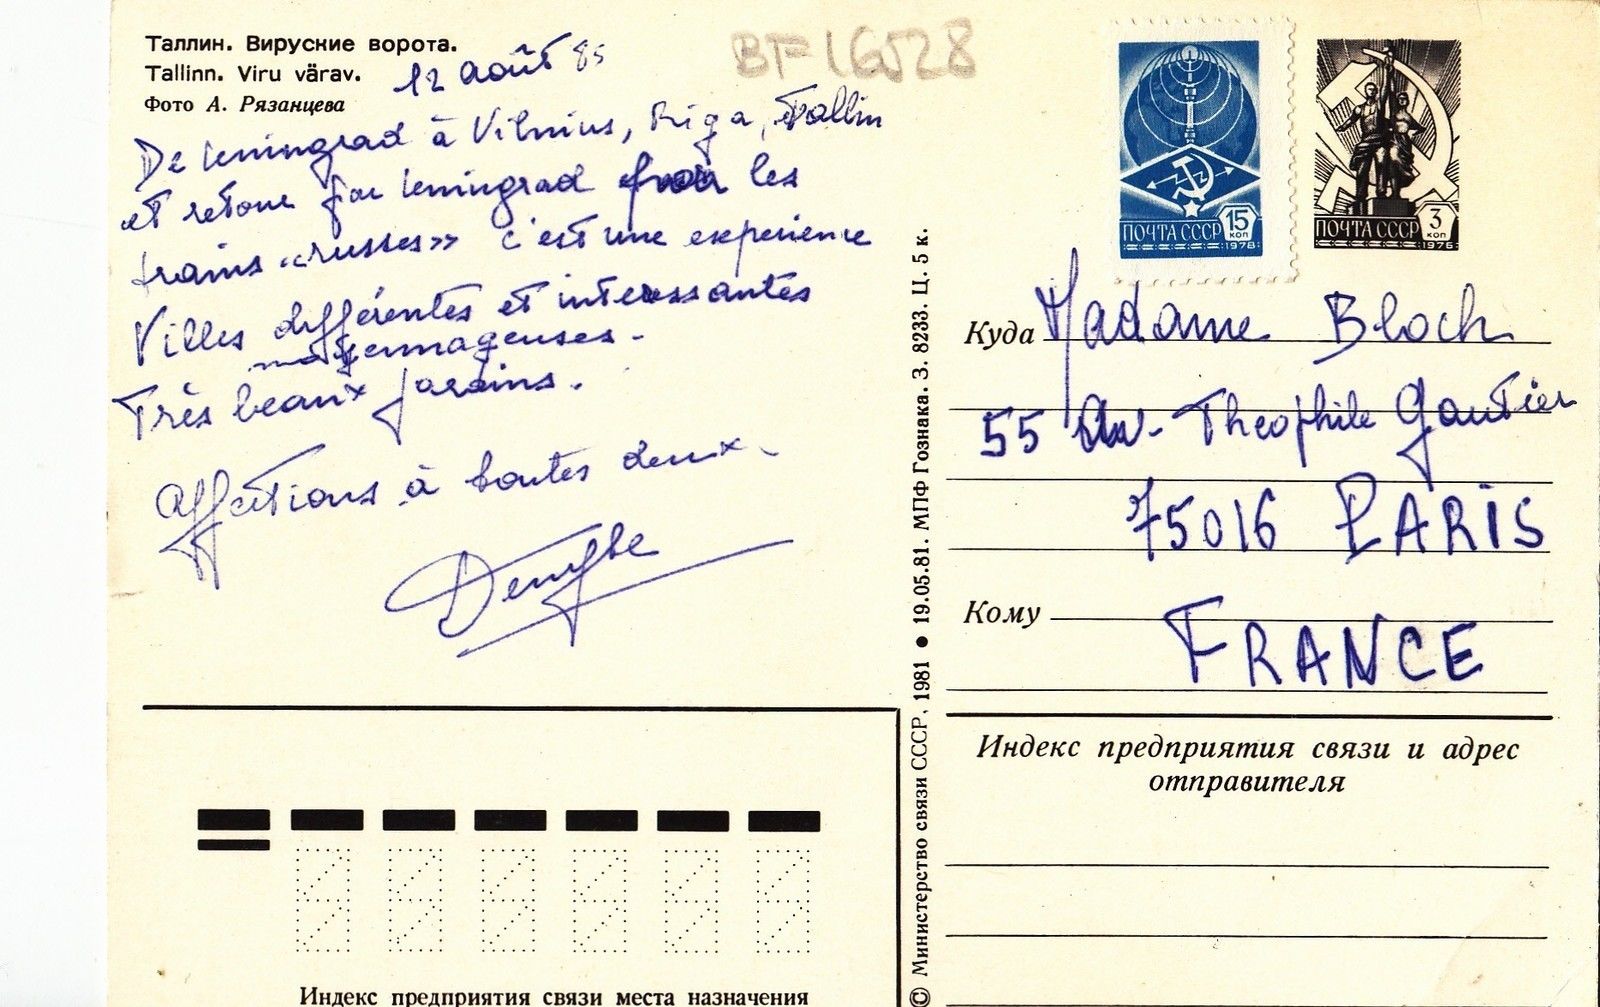 Таллин. Вируские ворота.
Tallinn. Viru värav.
Фото А. Рязанцева
12 août 85
BF16528
De Leningrad à Vilnius, Riga, Tallin
et retour par Leningrad les
trains «russes» c'est une experience
Villes différentes et interessantes
moyennageuses.
Très beaux jardins.
Affections à toutes deux.
ПОЧТА СССР 15 КОП 1978
ПОЧТА СССР 3 КОП 1976
Куда Madame Bloch
55 Av. Theophile Gautier
75016 PARIS
Кому
FRANCE
Индекс предприятия связи и адрес
отправителя
© Министерство связи СССР, 1981 ● 19.05.81. МПФ Гознака. З. 8233. Ц. 5 к.
Индекс предприятия связи места назначения